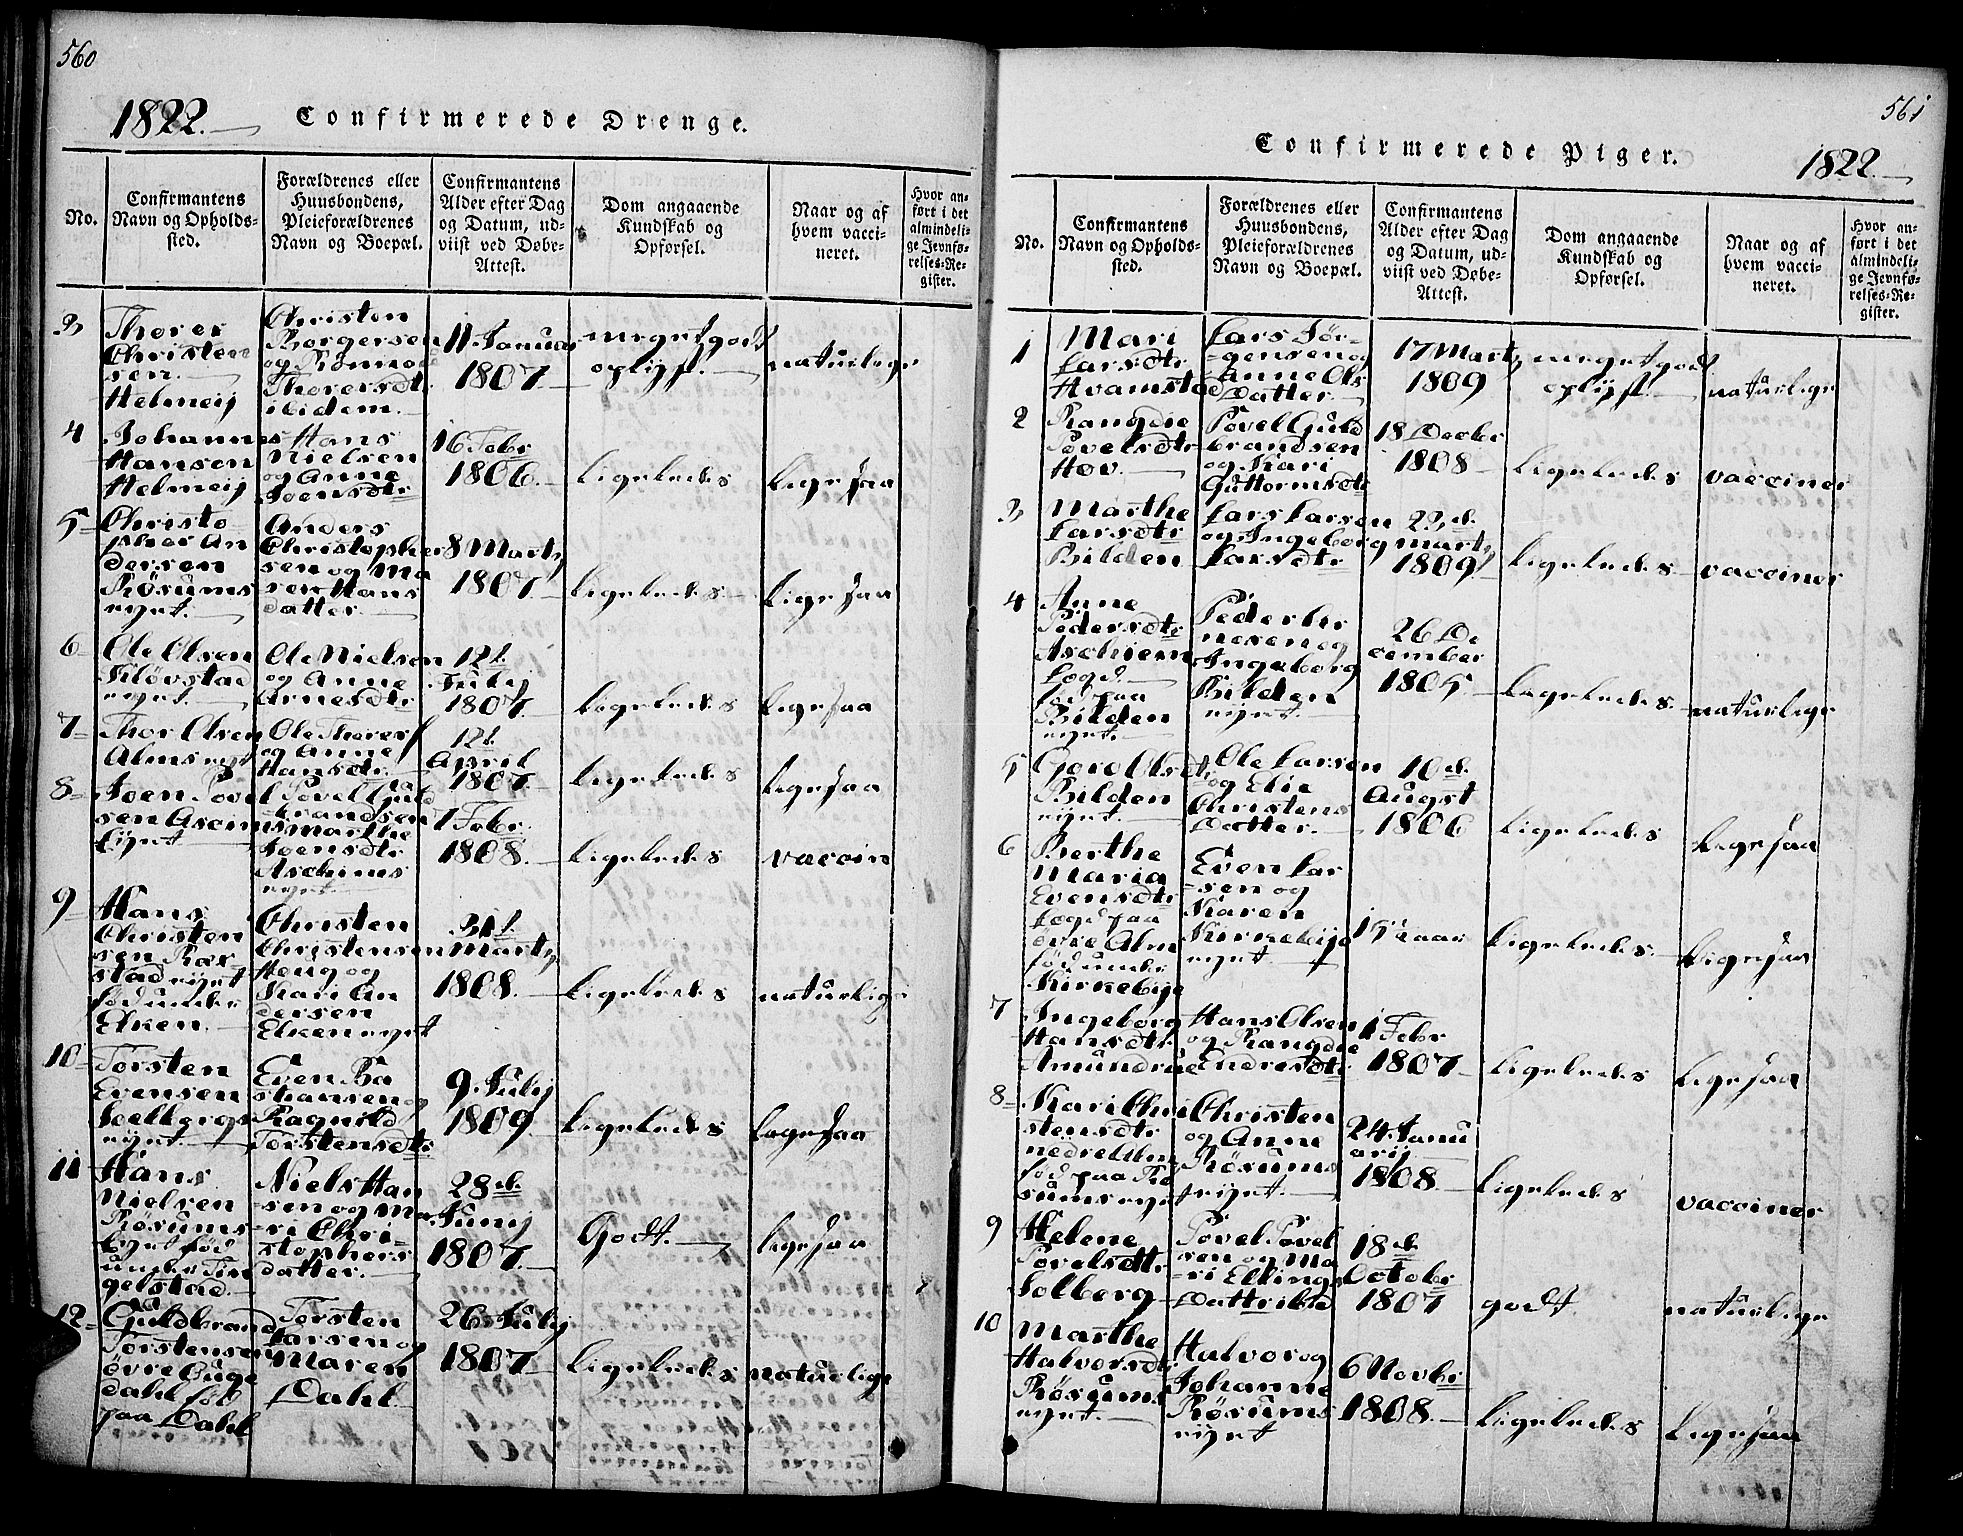 560
1822. Confirmerede Drenge.
No.
Confirmantens
Navn og Opholds-
sted.
Forældrenes eller
Huusbondens,
Pleieforældrenes
Navn og Boepæl.
Confirmantens
Alder efter Dag
og Datum, ud-
viist ved Døbe-
Attest.
Dom angaaende
Kundskab og
Opførsel.
Naar og af
hvem vacci-
neret.
Hvor an-
ført i det
almindeli-
ge Jevnfø-
relses-Re-
gister.
3
Thorer
Christen
sen.
Helmeij
Christen
Thorersdtr
ibidem.
11 Januar
1807
meget godt
oplyst.
naturlige
4
Johannes
Hansen
Helmeij
Hans
Nielsen
og Anne
Joensdtr
16 Febr
1806.
Ligeledes
Lige saa
5
Christo
pher An
dersen
Røsums
eyet.
Anders
Christopher
sen og Ma
ren Hans
datter.
8 Marts
1807.
Ligeledes
Lige saa
6
Ole Olsen
Kløvstad
eyet.
Ole Nielsen
og Anne
Arnesdtr
12t
Julij
1807.
Ligeledes
Ligesaa
7
Thor Olsen
Alms eyet
Ole Thores
og Anne
Hansdtr
12t
April
1807.
Ligeledes
Ligesaa
8
Joen Povel
sen
Eyet
Povel Guld
brandsen
Marthe
Joensdtr
Aschims
eyet.
1 Febr.
1808.
Ligeledes
vaccin
9
Hans
Christen
sen
stad eyet
fød under
Elken.
Christen
Christensen
Haug og
Kari An
dersen
Elken eyet
31t
Marts
1808.
Ligeledes
naturlige
10
Torsten
Evensen
Solbergs
eyet.
Even Ba
stiansen og
Ragnild
Torstensdtr
9. Julij
1809
Ligeledes
Ligesaa
11
Hans
Nielsen
Røsums
Eyet fød
under Tin
gelstad.
Niels Han
sen og Ma
ri Chri-
stophers
datter.
28 d.
Junij
1807.
Godt.
Ligesaa
12
Guldbrand
Torstensen
øvre Buge
dahl fød
paa Dahl
Torsten
Larsen og
Maren
Dahl.
26 Julij
1807
Ligeledes
naturlige
561
Confirmerede Piger. 1822.
No.
Confirmantens
Navn og Opholds-
sted.
Forældrenes eller
Huusbondens,
Pleieforældrenes
Navn og Boepæl.
Confirmantens
Alder efter Dag
og Datum, ud-
viist ved Døbe-
Attest.
Dom angaaende
Kundskab og
Opførsel.
Naar og af
hvem vacci-
neret.
Hvor an-
ført i det
almindeli-
ge Jevnfø-
relses-Re-
gister.
1
Mari
Larsdtr
Hvamstad
Lars Jør-
gensen og
Anne Ols
Datter
17 Marts
1809
meget godt
oplyst.
naturlige
2
Rangdie
Povelsdtr
Hov.
Povel Guld
brandsen
og Kari
Guttormsdtr
18 Decbr
1808
Ligeledes
vacciner
3
Marthe
Larsdtr
Bilden
Lars Larsen
og Ingeborg
Larsdtr
23 d.
marts
1809
Ligeledes
vacciner
4
Anne
Pedersdtr
Aschiem
Logd.
fød paa
Bilden
eyet.
Peder
og
Ingeborg
Bilden
eyet.
26 De
cember
1805
Ligeledes
naturlige
5
Goro Olsdtr
Bilden
eyet.
Ole Larsen
og Elie
Christens
Datter.
10 d.
Augst
1806
Ligeledes
Ligesaa
6
Berthe
Maria
Evensdtr
Logd paa
øvre Alm
fød under
Kirkebye
Even Lar
sen og
Karen
Kirkebye
eyet
15 aar
Ligeledes
Ligesaa
7
Ingeborg
Hansdtr
Amundrud
Hans Olsen
og Rangdie
Endresdtr
1 Febr
1807
Ligeledes
Ligesaa
8
Kari Chri
stensdtr
nedre Alm
fød paa Rø
sums eyet
Christen
og Anne
Røsums
eyet.
24. Janu
arij
1808.
Ligeledes
vacciner
9
Helene
Povelsdtr
Solberg
Povel Povel
sen og Ma
ri Ellings
Datter
18 d.
Octobr
1807
godt
naturlige
10
Marthe
Halvorsdtr
Røsums
eyet.
Halvor og
Johanne
Røsums
eyet
6 Novbr
1808.
Ligeledes
Ligesaa